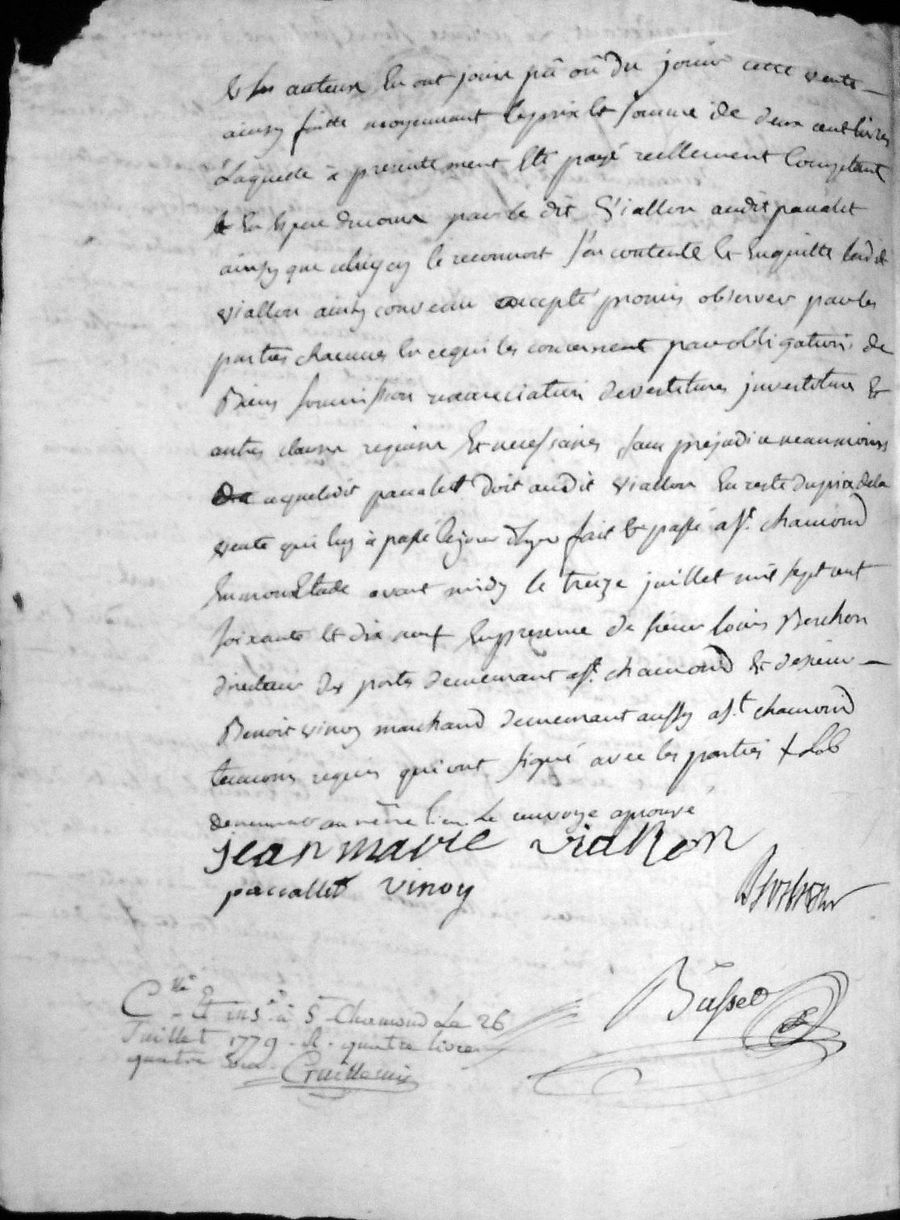 et ses auteurs en ont jouis pû où du jouir cette vente
ainsy faitte moyennant le prix et somme de deux cent livres
Laquelle à presentement Eté payé réellement Comptant
Et En Espece du cours par le dit Viallon audit pacalet
ainsy que celuy cy le reconnoit s'en contente Et En quitte led.t
viallon ainsy convenu accepté promis observer par les
parties chacunes En ce qui les concernent par obligation de
Biens soumission renonciation devestitures investiture Et
autres clauses requises Et necessaires sans prejudice neanmoins
a ce que ledit pacalet doit audit viallon En reste du prix de la
vente qui luy à passé le jour d'hyer fait Et passé a S.t chamond
En mon Etude avant midy le treize juillet mil sept cent
soixante Et dix neuf En presence de sieur Louis Berchon
directeur des postes demeurant a S.t chamond Et de sieur
Benoit vinoy marchand demeurant aussy a S.t chamond
temoins requis qui ont signé avec les parties +
demeurant au même lieu. Le renvoye aprouvé
jean marie viallon
paccallet vinoy
Berchon
Basset
C.lé Et ins.é à S.t Chamond Le 26
Juillet 1779 - R. quatre livres
quatre sous